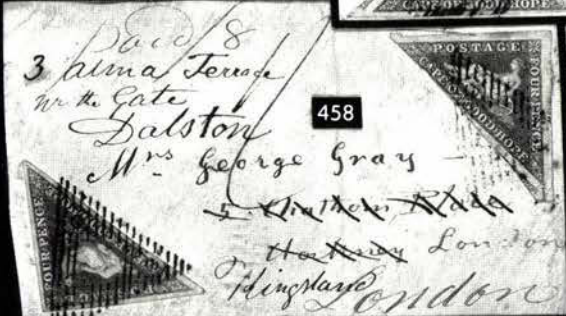 CAPE OF GOOD HOPE
Paid 8
3 Alma Terrace
nr the Gate
Dalston
458
POSTAGE
CAPE OF GOOD HOPE
FOUR PENCE
Mrs George Gray
London
Kingsland
London
FOUR PENCE